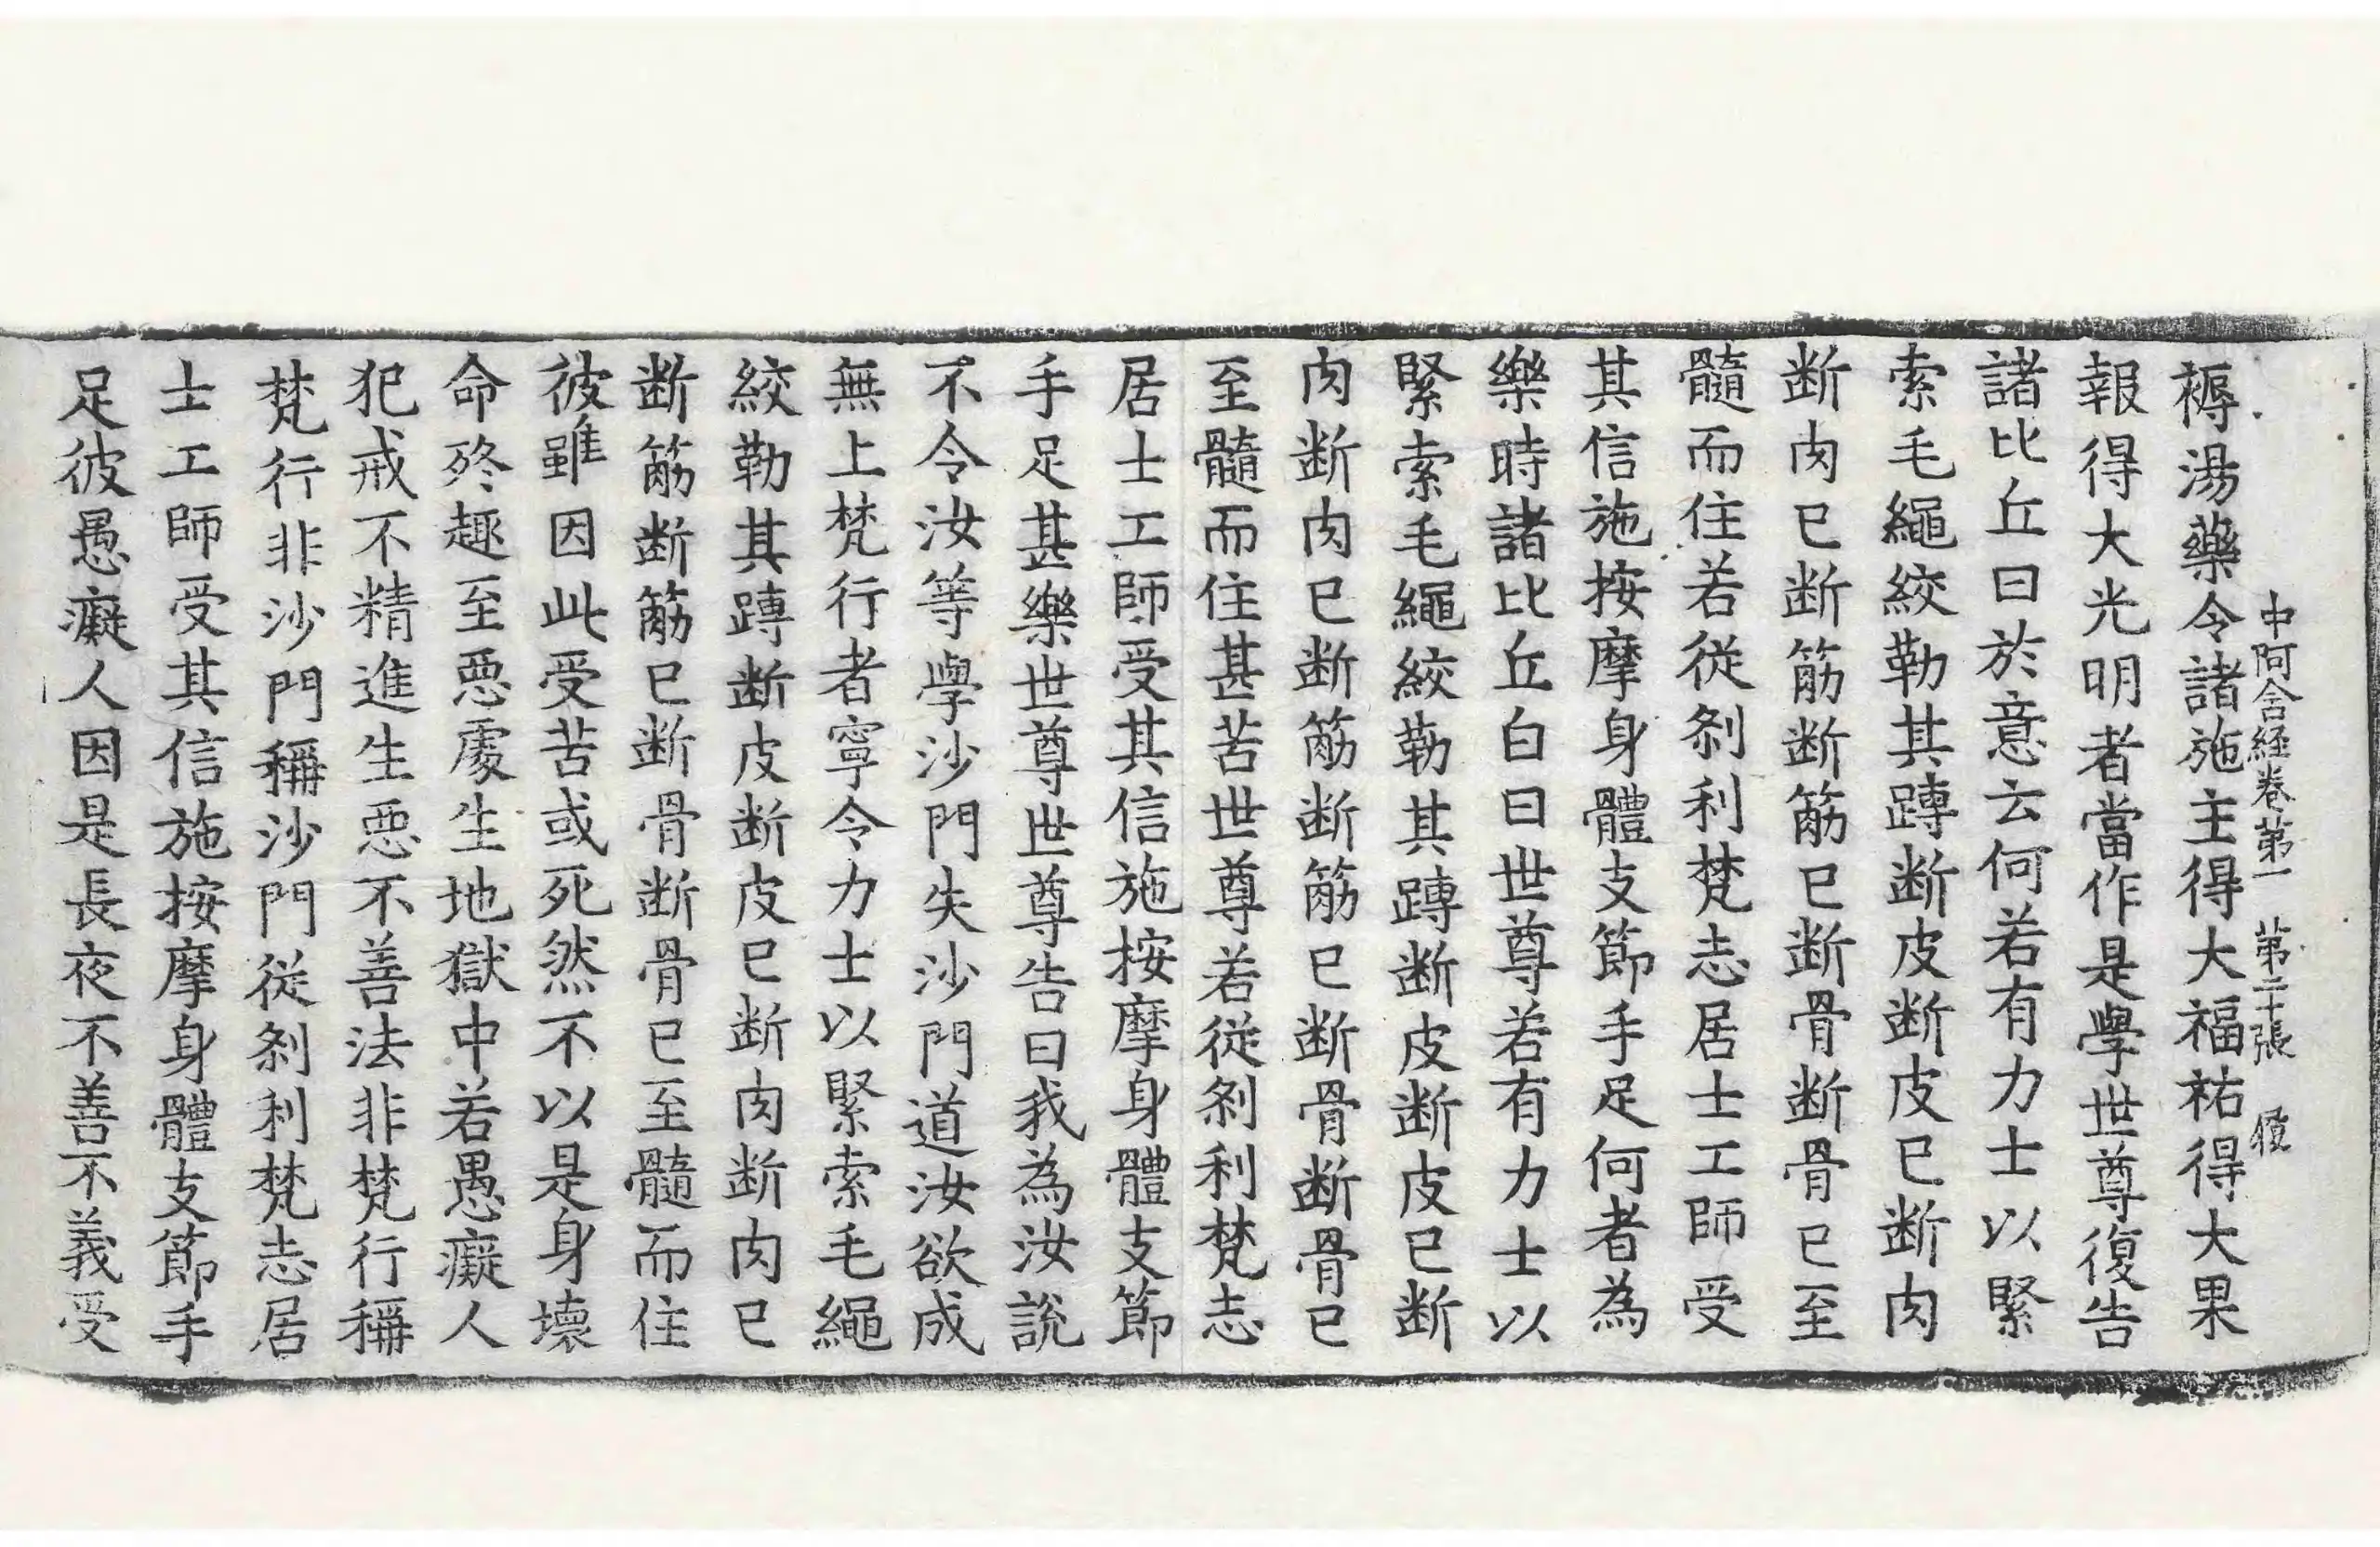 中阿含経卷第一 第二十張
褥湯藥令諸施主得大福祐得大果
報得大光明者當作是學世尊復告
諸比丘曰於意云何若有力士以緊
索毛繩絞勒其䏝断皮断皮已断肉
断肉已断筋断筋已断骨断骨已至
髓而住若從刹利梵志居士工師受
其信施按摩身體支節手足何者為
樂時諸比丘白曰世尊若有力士以
緊索毛繩絞勒其䏝断皮断皮已断
肉断肉已断筋断筋已断骨断骨已
至髓而住甚苦世尊若從刹利梵志
居士工師受其信施按摩身體支節
手足甚樂世尊世尊告曰我為汝說
不令汝等學沙門失沙門道汝欲成
無上梵行者寧令力士以緊索毛繩
絞勒其䏝断皮断皮已断肉断肉已
断筋断筋已断骨断骨已至髓而住
彼雖因此受苦或死然不以是身壞
命終趣至惡處生地獄中若愚癡人
犯戒不精進生惡不善法非梵行稱
梵行非沙門稱沙門從刹利梵志居
士工師受其信施按摩身體支節手
足彼愚癡人因是長夜不善不義受